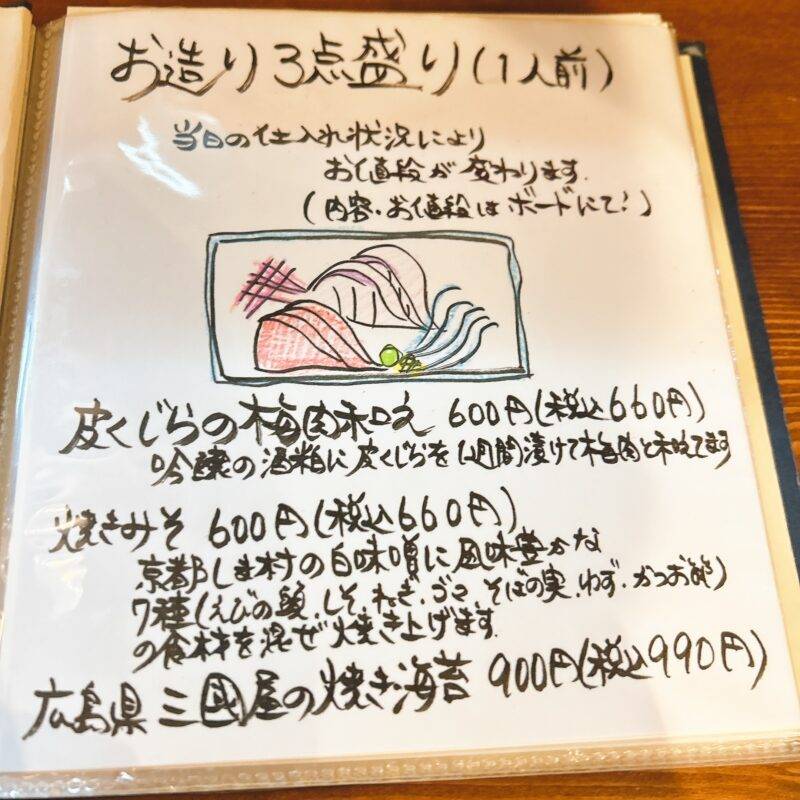 お造り3点盛り(1人前)
当日の仕入れ状況により
お値段が変わります.
(内容・お値段はボードにて!)
皮くじらの梅肉和え 600円(税込660円)
吟醸の酒粕に皮くじらを1週間漬けて梅肉と和えてます
焼きみそ 600円(税込660円)
京都しま村の白味噌に風味豊かな
7種(えびの髭.しそ.ねぎ.ゴマ.そばの実.ゆず.かつお節)
の食材を混ぜ焼き上げます.
広島県三國屋の焼き海苔 900円(税込990円)